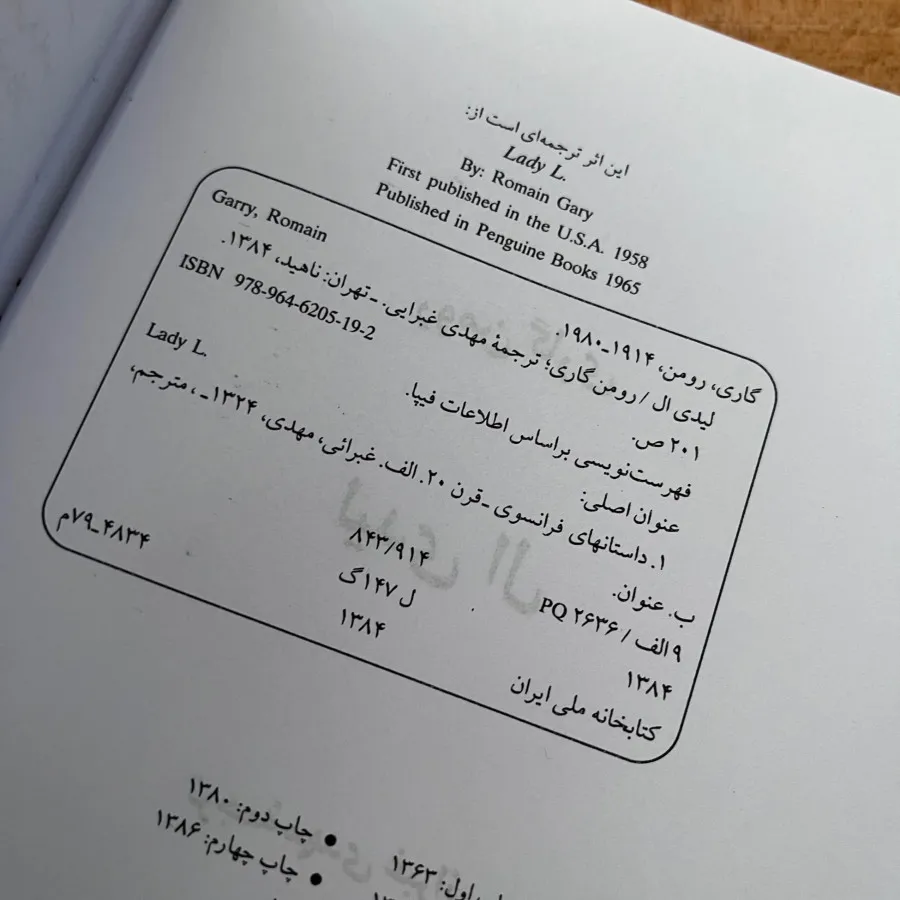 این اثر ترجمه‌ای است از:
Lady L.
By: Romain Gary
First published in the U.S.A. 1958
Published in Penguine Books 1965
Garry, Romain
گاری، رومن، ۱۹۱۴-۱۹۸۰.
لیدی ال / رومن گاری؛ ترجمهٔ مهدی غبرایی. ـ تهران: ناهید، ۱۳۸۴.
۲۰۱ ص.
ISBN 978-964-6205-19-2
فهرست‌نویسی براساس اطلاعات فیپا.
عنوان اصلی: Lady L.
۱. داستانهای فرانسوی ـ قرن ۲۰. الف. غبرائی، مهدی، ۱۳۲۴ـ ، مترجم،
ب. عنوان.
۹ الف / ۲۶۳۶ PQ ۸۴۳/۹۱۴
۱۳۸۴ ل ۱۴۷گ
۱۳۸۴
کتابخانه ملی ایران ۴۸۳۴ـ۷۹م
اول: ۱۳۶۳ ● چاپ دوم: ۱۳۸۰
● چاپ چهارم: ۱۳۸۶